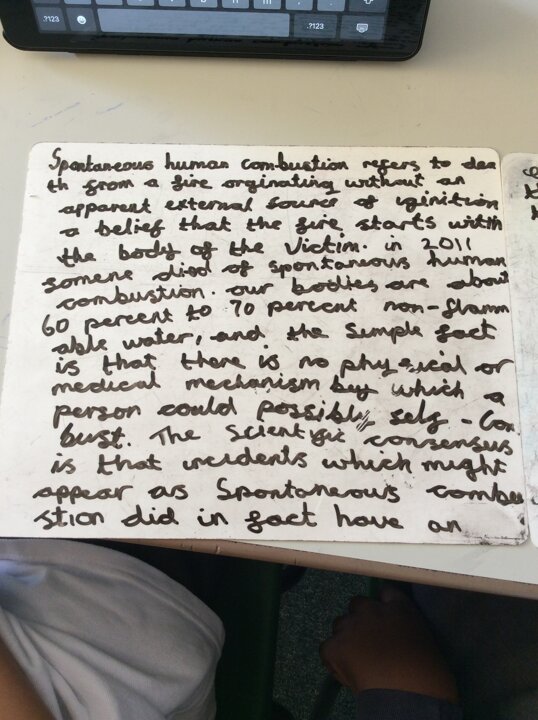 .?123
.?123
Spontaneous human combustion refers to dea
th from a fire orginating without an
apparent external source of iginition
a belief that the fire starts within
the body of the victim. in 2011
somene died of spontaneous human
combustion. our bodies are about
60 percent to 70 percent non-flamm
able water, and the simple fact
is that there is no physical or
medical mechanism by which a
person could possibly self-com
bust. The scientific consensus
is that incidents which might
appear as Spontaneous combu
stion did in fact have an